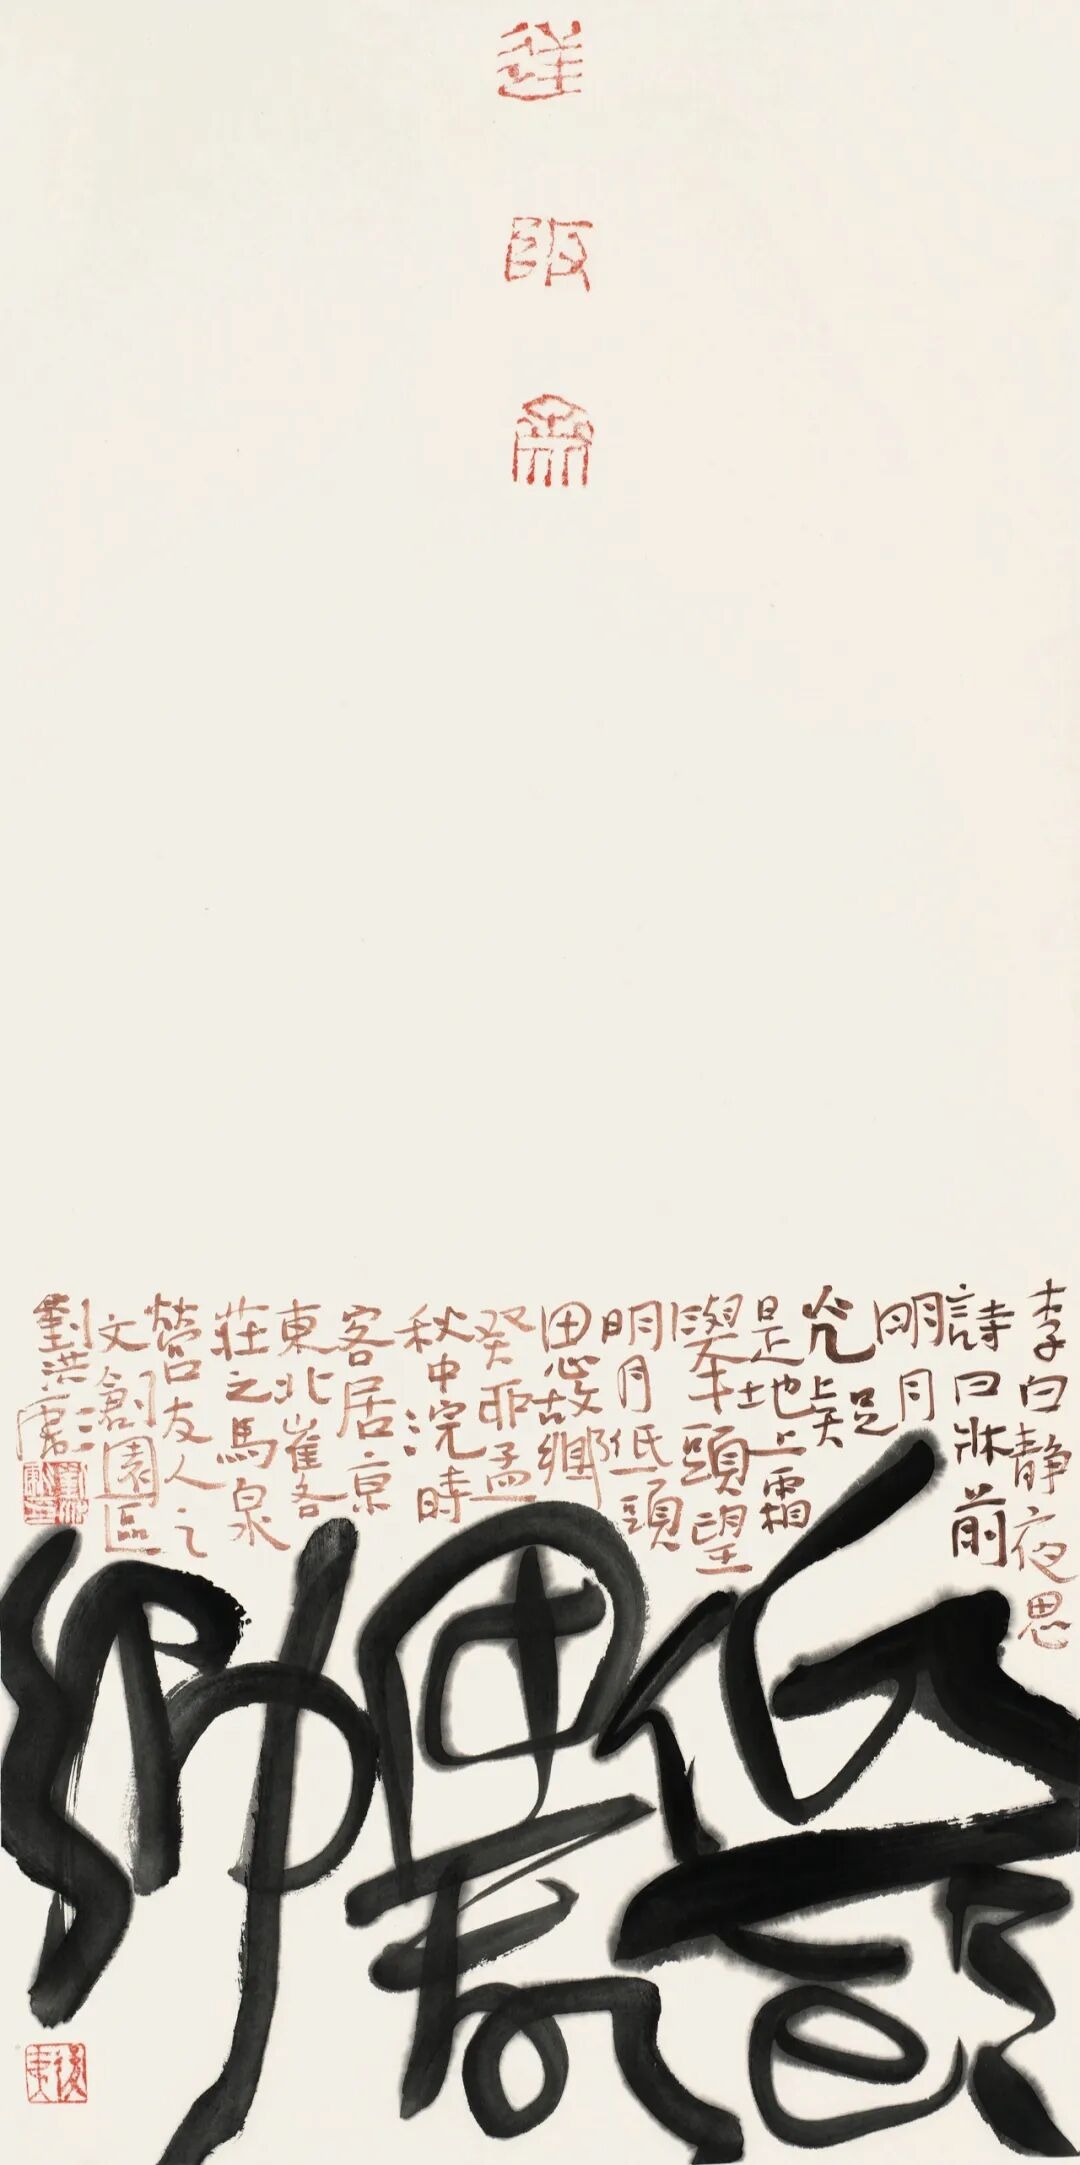 李白靜夜思
詩曰牀前
明月
光疑
是地上霜
舉頭望
明月低頭
思故鄉
癸卯孟
秋中浣時
客居京
東北崔各
莊之馬泉
營友人之
文創園區
劉洪彪
低頭
思故
鄉